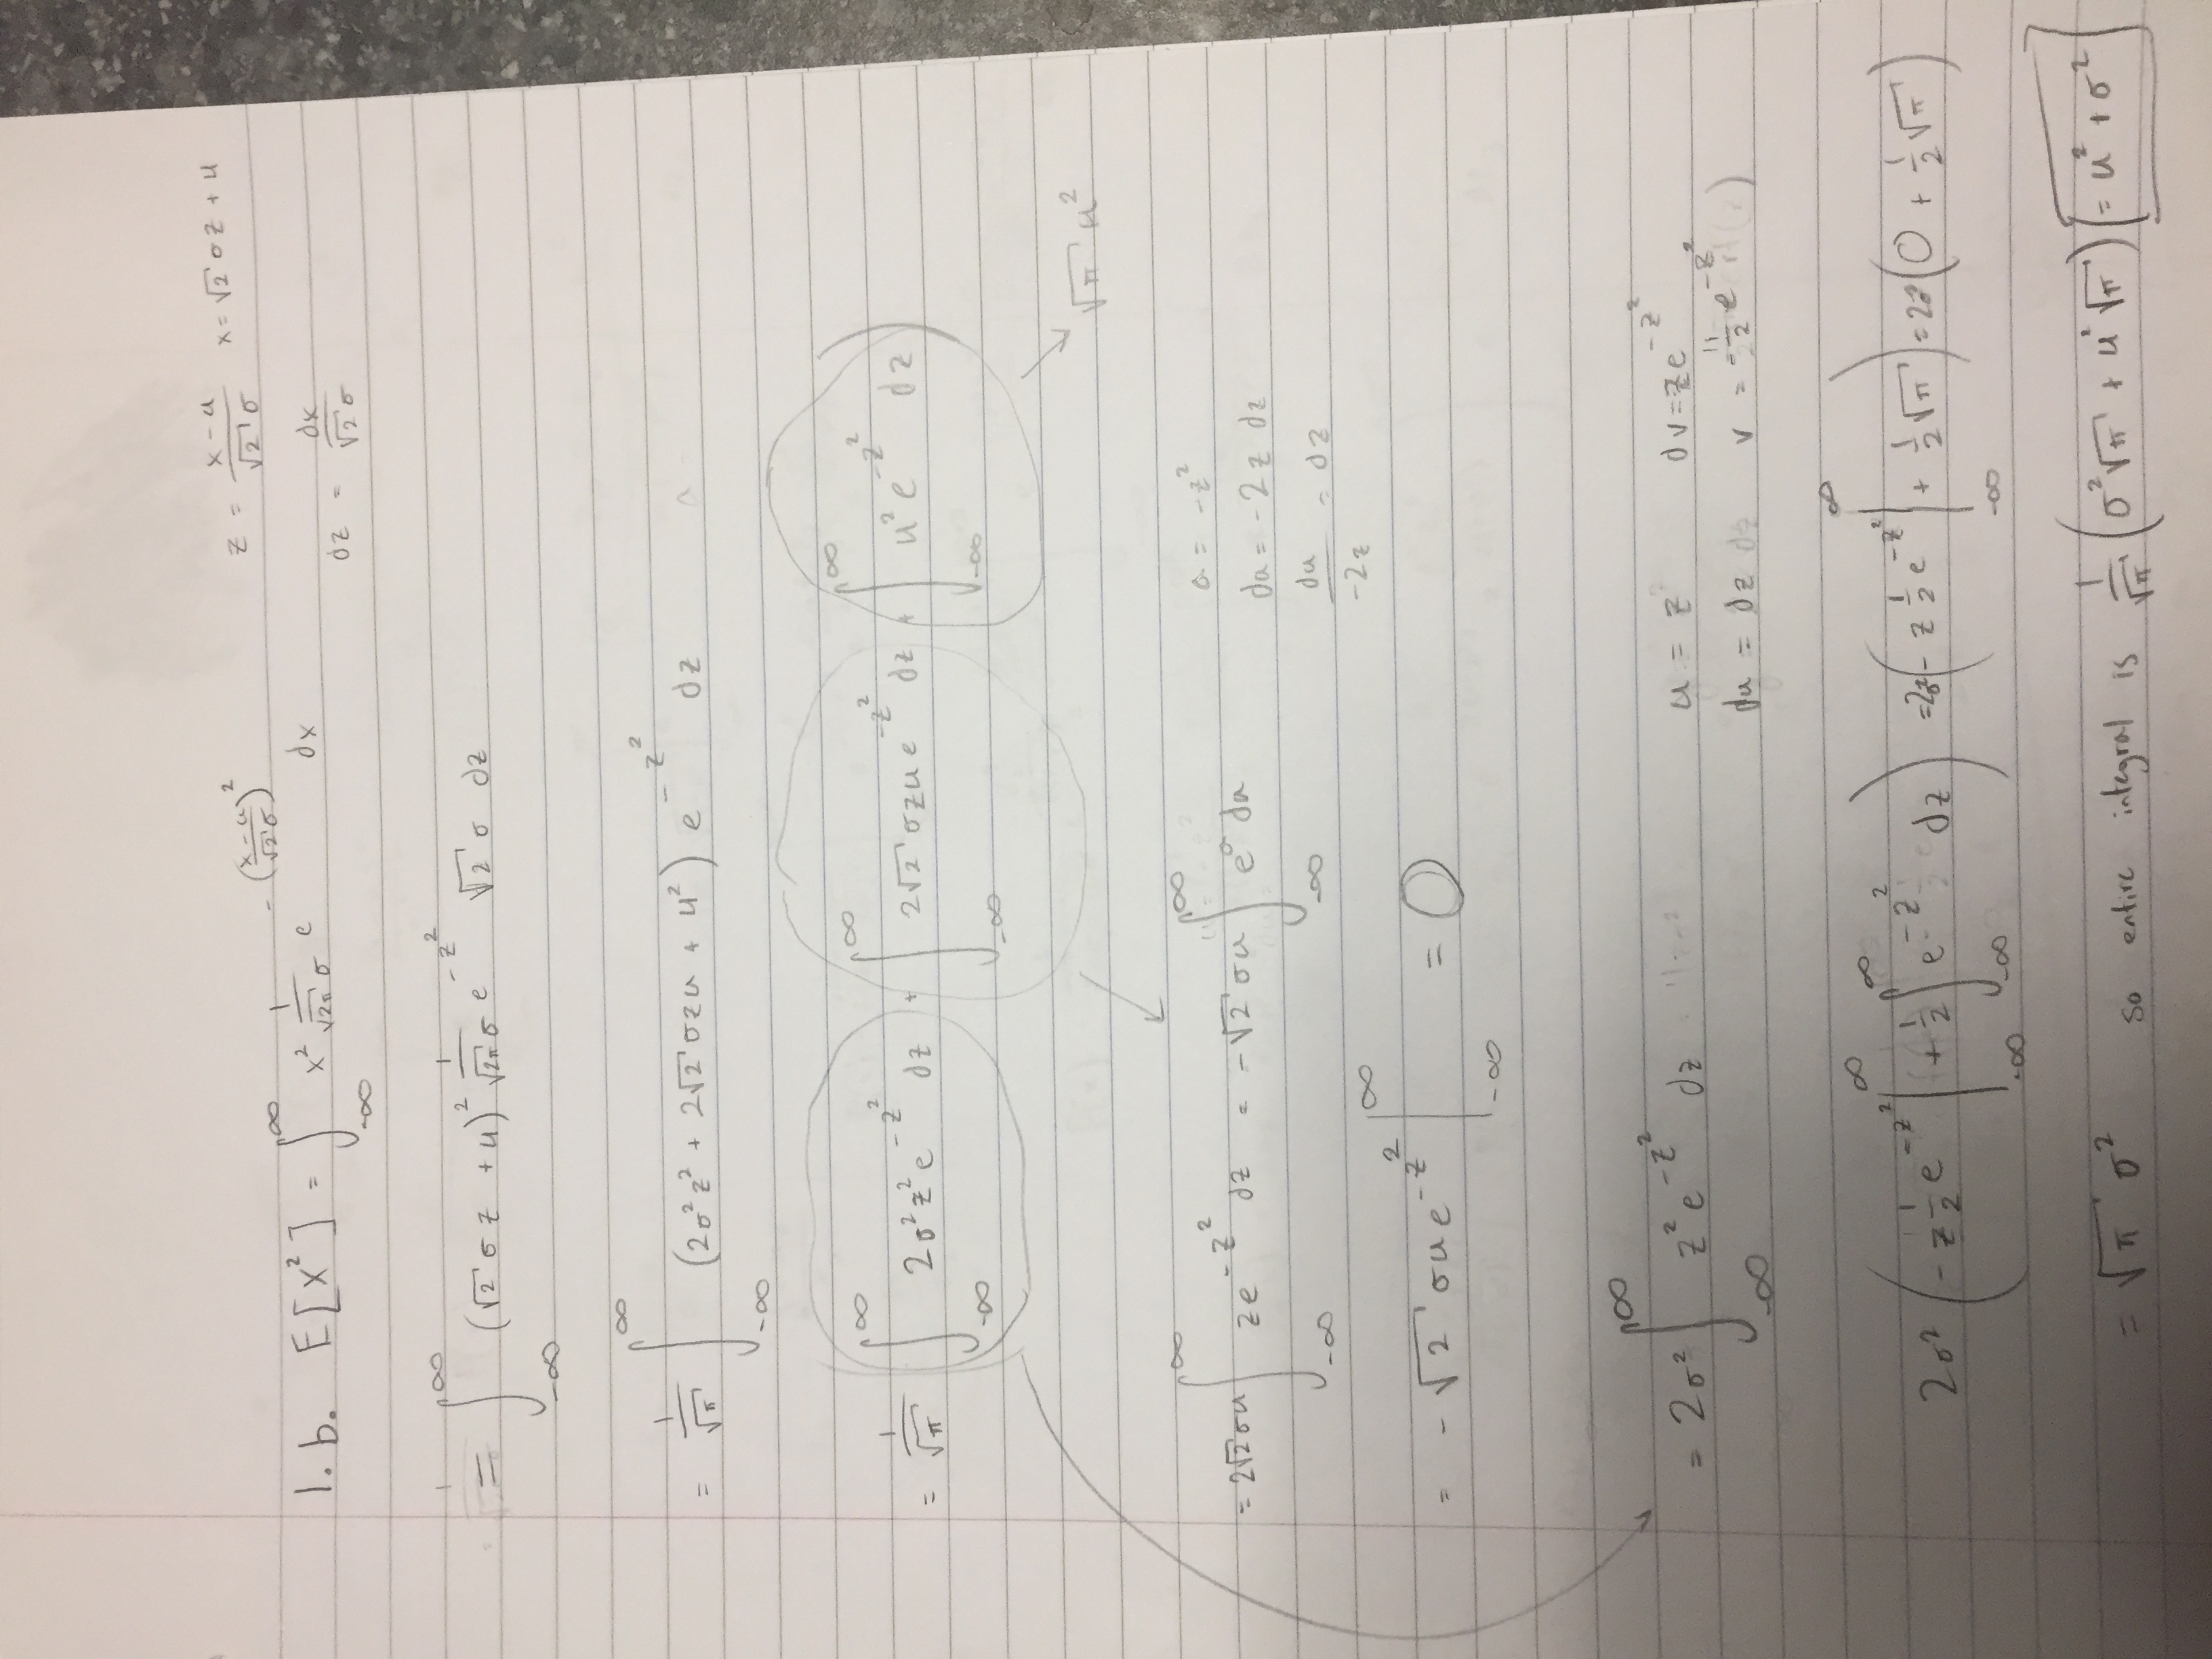 1.b. E[X²] = ∫_{-∞}^{∞} x² 1/(√2π σ) e^{-((x-u)/(√2 σ))²} dx
z = (x-u)/(√2 σ) x = √2 σz + u
dz = dx/(√2 σ)
= ∫_{-∞}^{∞} (√2 σz + u)² 1/(√2π σ) e^{-z²} √2 σ dz
= 1/√π ∫_{-∞}^{∞} (2σ²z² + 2√2 σzu + u²) e^{-z²} dz
= 1/√π ∫_{-∞}^{∞} 2σ²z²e^{-z²} dz + ∫_{-∞}^{∞} 2√2 σzue^{-z²} dz + ∫_{-∞}^{∞} u²e^{-z²} dz)
√π u²
= 2√2 σu ∫_{-∞}^{∞} ze^{-z²} dz = -√2 σu ∫_{-∞}^{∞} e^a da
a = -z²
da = -2z dz
du/(-2z) = dz
= -√2 σue^{-z²} |_{-∞}^{∞} = 0
= 2σ² ∫_{-∞}^{∞} z²e^{-z²} dz
u = z dv = ze^{-z²}
du = dz v = -1/2 e^{-z²}
2σ² (-z 1/2 e^{-z²} |_{-∞}^{∞} + 1/2 ∫_{-∞}^{∞} e^{-z²} dz) = 2σ² (-z 1/2 e^{-z²} |_{-∞}^{∞} + 1/2 √π) = 2σ² (0 + 1/2 √π)
= √π σ² so entire integral is 1/√π (σ²√π + u²√π) = u² + σ²